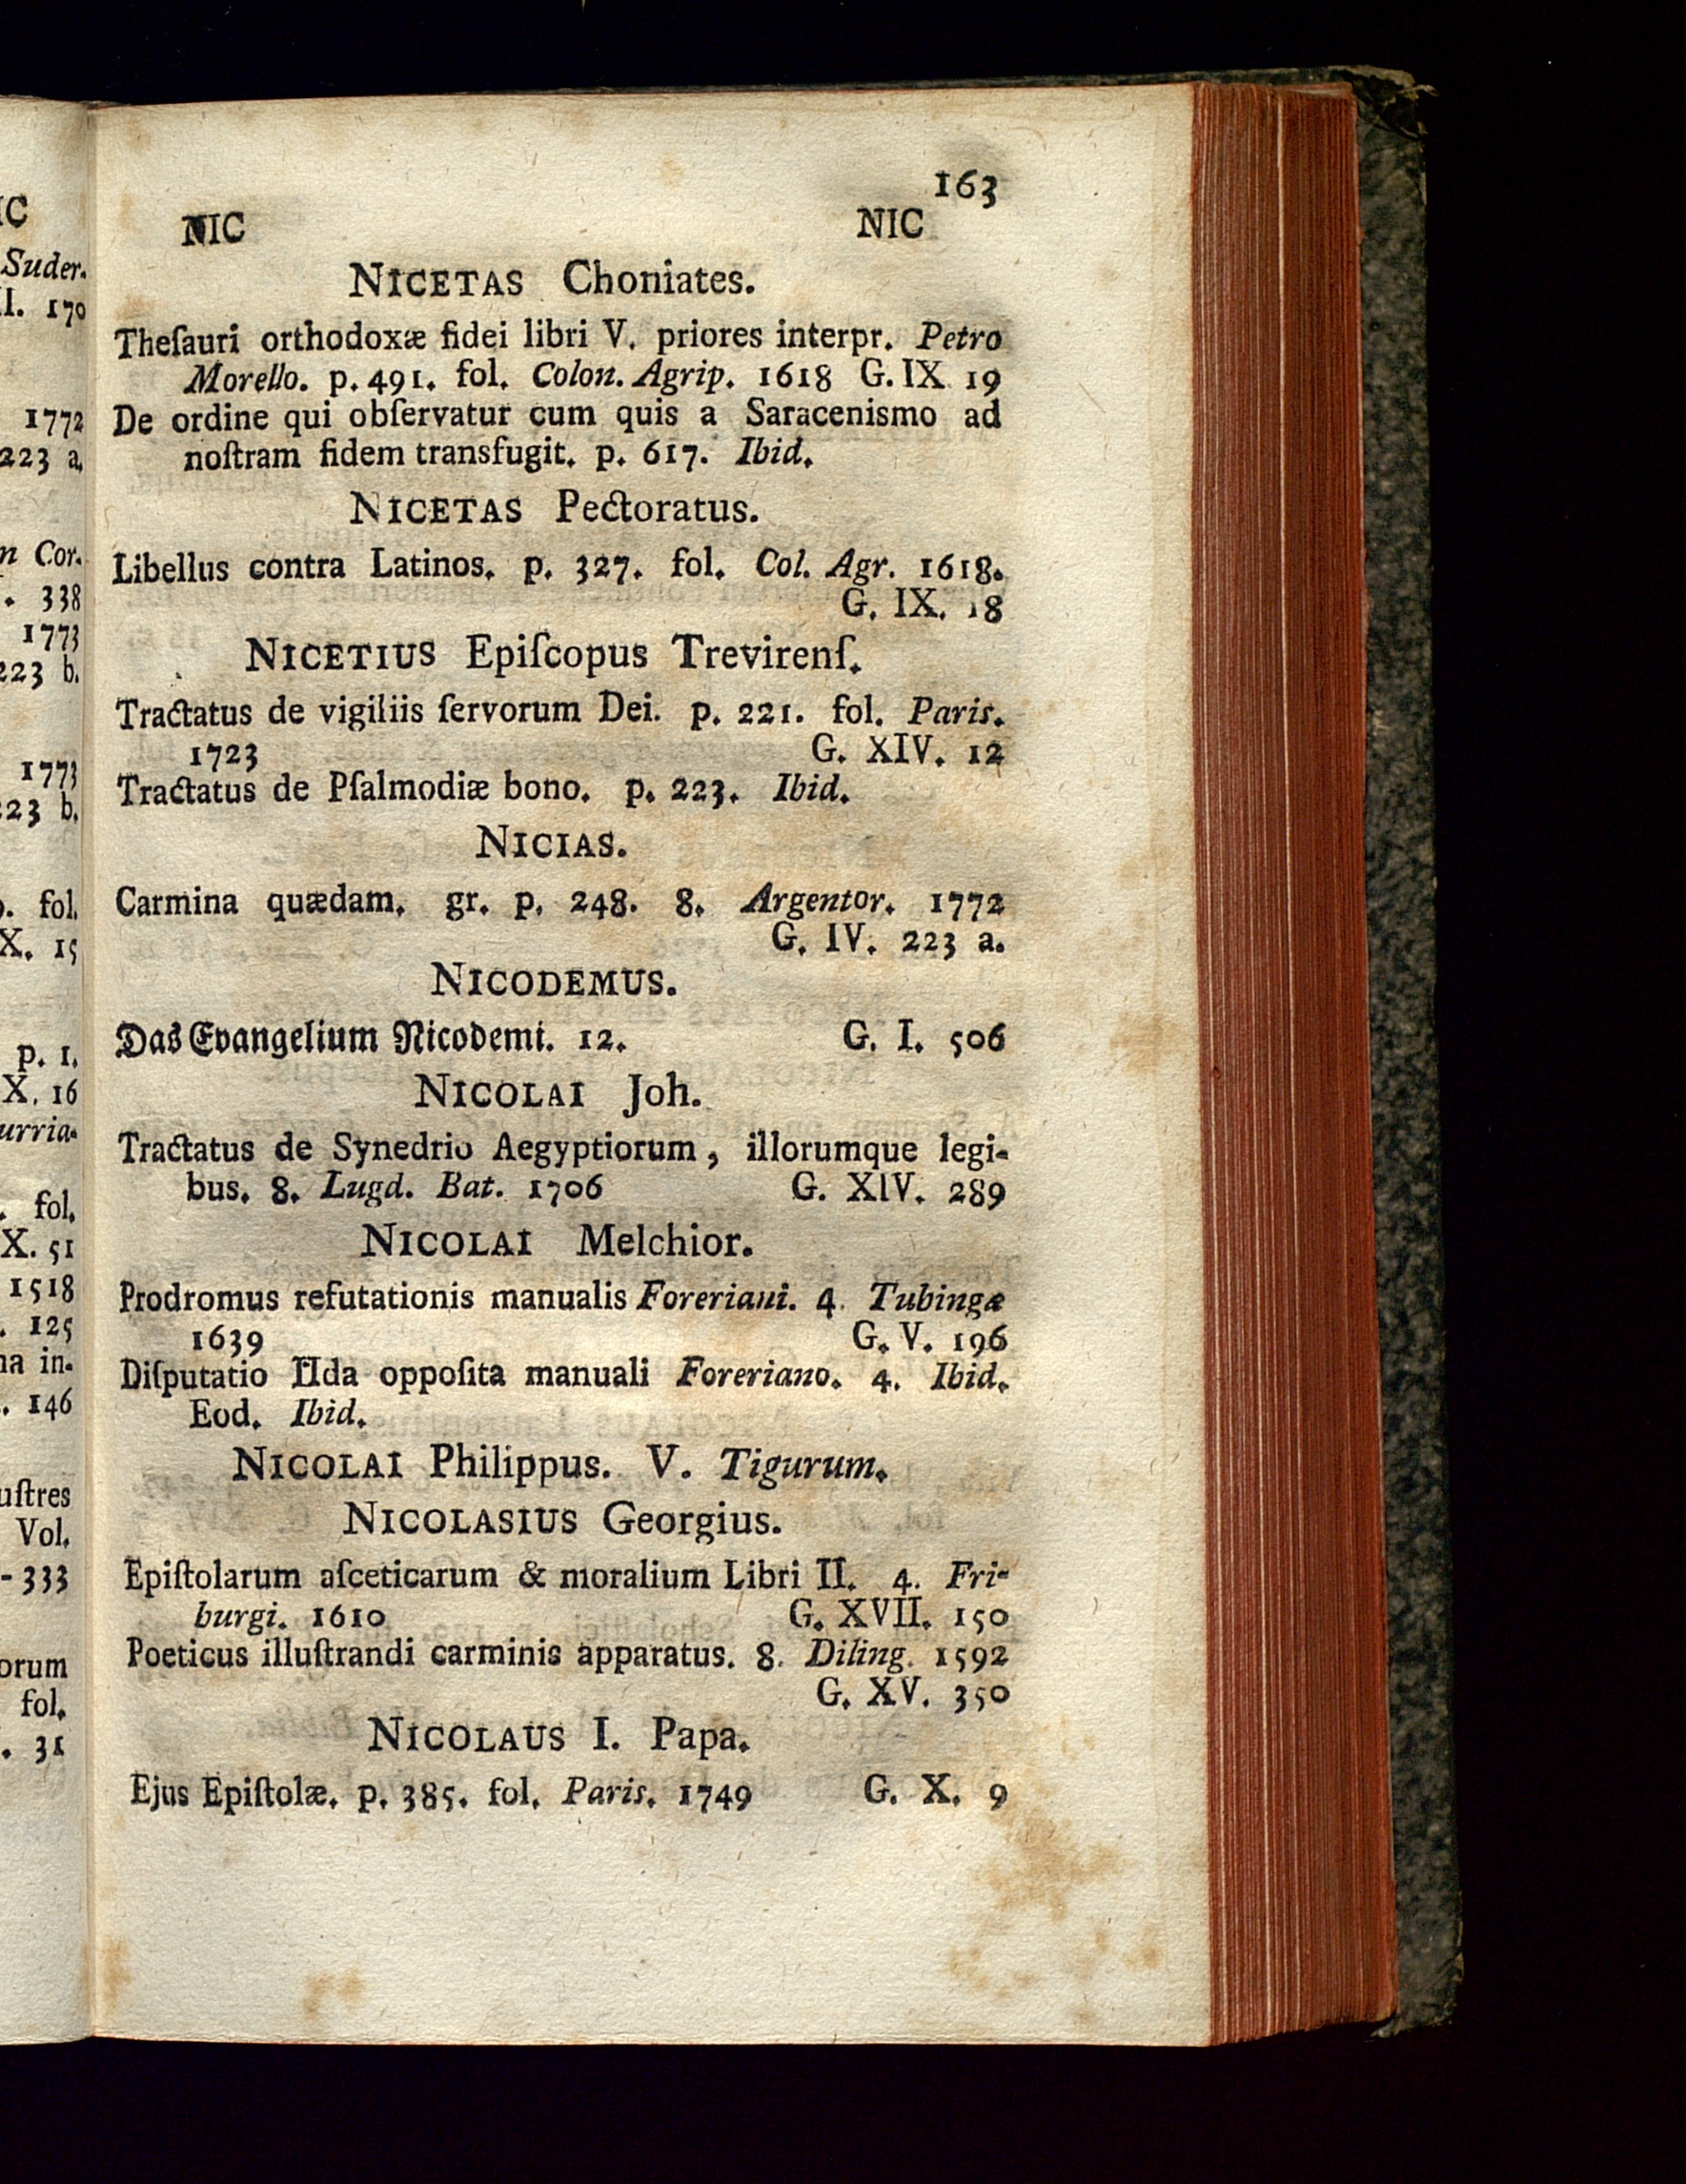 163
NIC NIC
NICETAS Choniates.
Theſauri orthodoxæ fidei libri V. priores interpr. Petro
Morello. p. 491. fol. Colon. Agrip. 1618 G. IX 19
De ordine qui obſervatur cum quis a Saracenismo ad
noſtram fidem transfugit. p. 617. Ibid.
NICETAS Pectoratus.
Libellus contra Latinos. p. 327. fol. Col. Agr. 1618.
G. IX. 18
NICETIUS Epiſcopus Trevirenſ.
Tractatus de vigiliis ſervorum Dei. p. 221. fol. Paris.
1723 G. XIV. 12
Tractatus de Pſalmodiæ bono. p. 223. Ibid.
NICIAS.
Carmina quædam. gr. p. 248. 8. Argentor. 1772
G. IV. 223 a.
NICODEMUS.
Das Evangelium Nicodemi. 12. G. I. 506
NICOLAI Joh.
Tractatus de Synedrio Aegyptiorum, illorumque legi-
bus. 8. Lugd. Bat. 1706 G. XIV. 289
NICOLAI Melchior.
Prodromus refutationis manualis Foreriani. 4. Tubingæ
1639 G. V. 196
Diſputatio IIda oppoſita manuali Foreriano. 4. Ibid.
Eod. Ibid.
NICOLAI Philippus. V. Tigurum.
NICOLASIUS Georgius.
Epiſtolarum aſceticarum & moralium Libri II. 4. Fri-
burgi. 1610 G. XVII. 150
Poeticus illuſtrandi carminis apparatus. 8. Diling. 1592
G. XV. 350
NICOLAUS I. Papa.
Ejus Epiſtolæ. p. 385. fol. Paris. 1749 G. X. 9